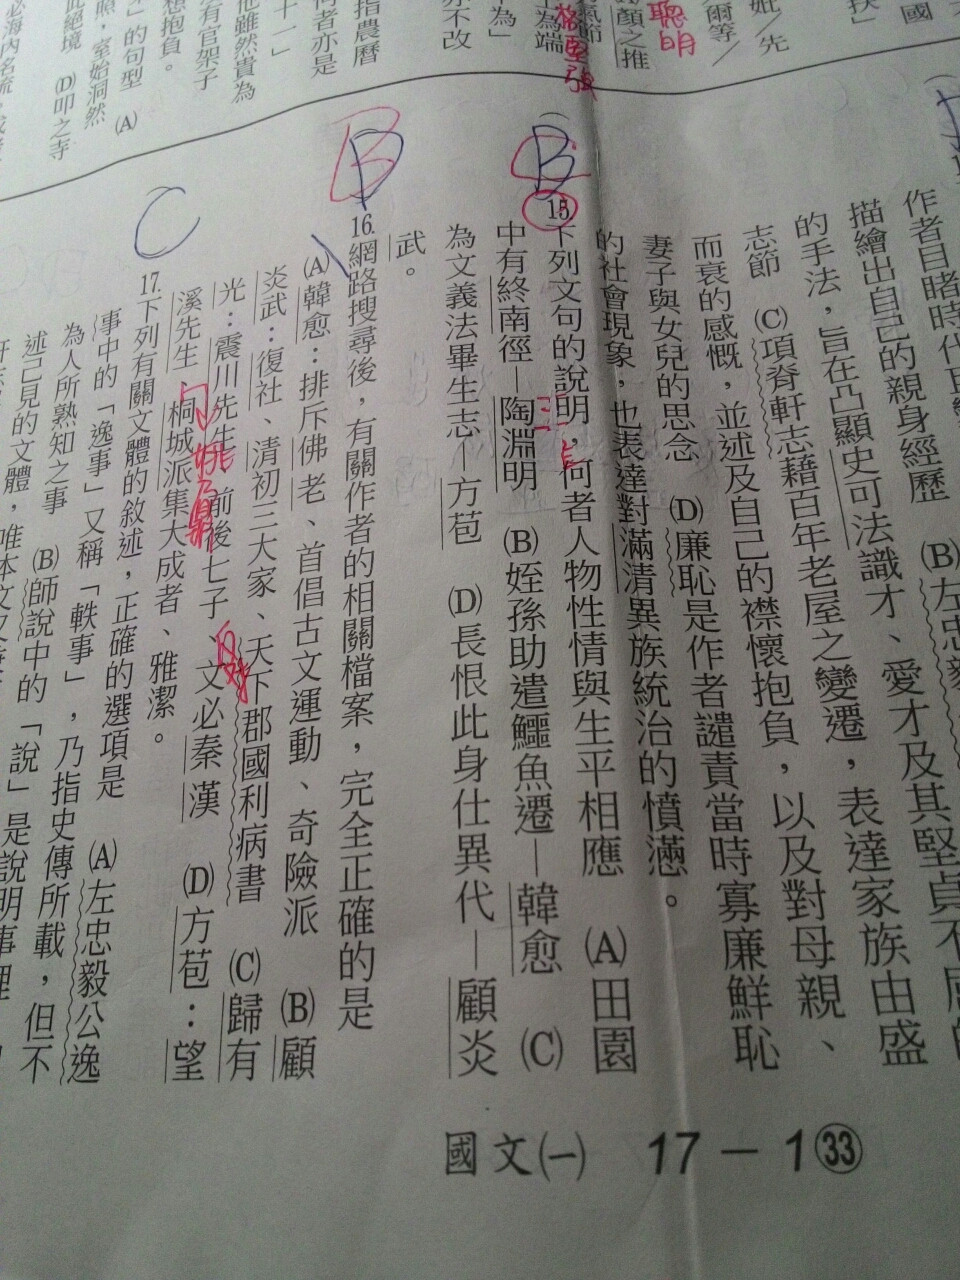 國
扶」
妣／先
爾等／
聰明
顏之推
氣節
為端
為」
亦不改
指農曆
何者亦是
十一」
他雖然貴為
有官架子
想抱負。
」的句型 (A)
照，室始洞然
此絕境 (D)叩之寺
必海內名流
作者目睹時代
描繪出自己的親身經歷 (B)左忠毅
的手法，旨在凸顯史可法識才、愛才及其堅貞不屈的
志節 (C)項脊軒志藉百年老屋之變遷，表達家族由盛
而衰的感慨，並述及自己的襟懷抱負，以及對母親、
妻子與女兒的思念 (D)廉恥是作者譴責當時寡廉鮮恥
的社會現象，也表達對滿清異族統治的憤懣。
B
15.下列文句的說明，何者人物性情與生平相應 (A)田園
中有終南徑－陶淵明 (B)姪孫助遣鱷魚遷－韓愈 (C)
為文義法畢生志－方苞 (D)長恨此身仕異代－顧炎
武。
B
16.網路搜尋後，有關作者的相關檔案，完全正確的是
(A)韓愈：排斥佛老、首倡古文運動、奇險派 (B)顧
炎武：復社、清初三大家、天下郡國利病書 (C)歸有
光：震川先生、前後七子、文必秦漢 (D)方苞：望
溪先生、桐城派集大成者、雅潔。
姚鼐
C
17.下列有關文體的敘述，正確的選項是 (A)左忠毅公逸
事中的「逸事」又稱「軼事」，乃指史傳所載，但不
為人所熟知之事 (B)師說中的「說」是說明事理
述己見的文體，唯本文
國文(一) 17－1㉝